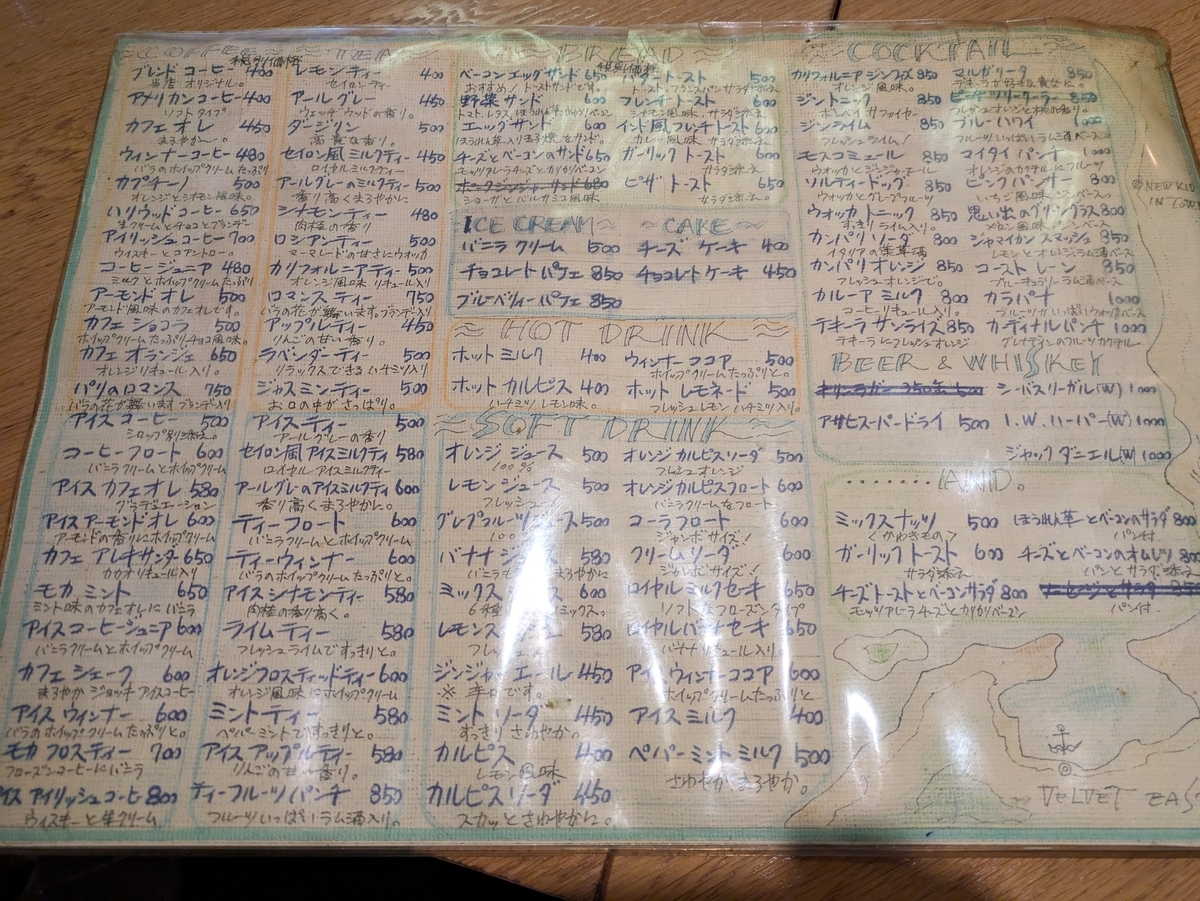 COFFEE
ブレンド コーヒー 400
当店 オリジナル。
アメリカン コーヒー 400
ソフト タイプ
カフェ オレ 450
まろやかー。
ウィンナー コーヒー 480
バラのホイップクリーム たっぷり
カプチーノ 500
オレンジとシナモン風味。
ハリウッド コーヒー 650
生クリームとチョコとブランデー
アイリッシュ コーヒー 700
ウイスキーとコアントロー。
コーヒー ジュニア 480
ミルクとホイップクリームたっぷり
アーモンド オレ 500
アーモンド風味のカフェオレです。
カフェ ショコラ 500
ホイップクリームたっぷりチョコ風味。
カフェ オランジェ 650
オレンジリキュール入り。
パリのロマンス 750
バラの花が舞います ブランデー入り
アイス コーヒー 500
シロップ別添え。
コーヒー フロート 600
バニラクリームとホイップクリーム
アイス カフェ オレ 580
グラデュエーション
アイス アーモンド オレ 600
アーモンドの香りにホイップクリーム
カフェ アレキサンター 650
カカオリキュール入り
モカ ミント 650
ミント味のカフェオレに バニラ
アイス コーヒー ジュニア 600
バニラクリームとホイップクリーム
カフェ シェーク 600
まろやか ジョッキ アイスコーヒー
アイス ウィンナー 600
バラのホイップクリーム たっぷりと。
モカ フロスティー 700
フローズンコーヒーにバニラ
アイス アイリッシュ コーヒー 800
ウィスキーと生クリーム
TEA
税別価格
レモン ティー 400
セイロンティー
アール グレー 450
ウェッヂウッドの香り。
ダージリン 500
高貴な香り。
セイロン風 ミルクティー 450
ロイヤルミルクティー
アールグレーのミルクティー 500
香り高くまろやかに
シナモンティー 480
肉桂の香り
ロシアンティー 500
マーマレードの甘さにウオッカ
カリフォルニアティー 500
オレンジ風味 リキュール入り
ロマンス ティー 750
バラの花が舞います。ブランデー入り
アップルティー 450
りんごの甘い香り。
ラベンダーティー 500
リラックスできる ハチミツ入り
ジャスミンティー 500
お口の中がさっぱり。
アイスティー 500
アールグレーの香り
セイロン風 アイスミルクティ 580
ロイヤル アイスミルクティー
アールグレーのアイスミルクティ 600
香り高くまろやかに。
ティーフロート 600
バニラクリームとホイップクリーム
ティーウィンナー 600
バラのホイップクリーム たっぷりと。
アイスシナモンティー 580
肉桂の香り高く。
ライムティー 580
フレッシュライムですっきりと。
オレンジフロスティッドティー 600
オレンジ風味にホイップクリーム
ミントティー 580
ペパーミントですっきりと。
アイス アップルティー 580
りんごの甘い香り。
ティーフルーツパンチ 850
フルーツいっぱいラム酒入り。
BREAD
税別価格
ベーコン エッグ サンド 650
おすすめ！トーストサンドです。
野菜 サンド 600
エッグサンド 600
チーズとベーコンのサンド 650
モッツァレラチーズとカリカリベーコン
ポークジンジャーサンド 680
ショーガとバルサミコ風味
トースト 500
フレンチ トースト 600
インド風 フレンチトースト 600
カレー風味 サラダ添え
ガーリック トースト 600
サラダ添え
ピザ トースト 650
サラダ添え。
ICE CREAM
バニラ クリーム 500
チョコレート パフェ 850
ブルーベリィーパフェ 850
CAKE
チーズ ケーキ 400
チョコレート ケーキ 450
HOT DRINK
ホット ミルク 400
ホット カルピス 400
ハチミツ レモン味。
ウィンナー ココア 500
ホイップクリームたっぷりと。
ホット レモネード 500
フレッシュレモン ハチミツ入り。
SOFT DRINK
オレンジ ジュース 500
100%
レモン ジュース 500
フレッシュ
グレープフルーツジュース 500
バナナ ジュース 580
まろやかに
ミックス 600
レモンス 580
ジンジャーエール 450
※ 辛口です。
ミント ソーダ 450
すっきり さわやか。
カルピス 400
レモン風味
カルピス ソーダ 450
スカッとさわやかに。
オレンジ カルピスソーダ 500
フレシュオレンジ
オレンジカルピスフロート 600
バニラクリームをフロート
コーラフロート 600
ジャンボサイズ！
クリームソーダ 600
ジャンボサイズ！
ロイヤルミルクセーキ 650
ソフトなフローズンタイプ
ロイヤルバナナセーキ 650
バナナリキュール入り。
アイスウィンナーココア 600
ホイップクリームたっぷりと
アイス ミルク 400
ペパーミントミルク 500
さわやか まろやか。
COCKTAIL
カリフォルニア ジンフィズ 850
オレンジ風味。
ジントニック 850
ジンライム 850
モスコミュール 850
ウオッカとジンジャーエール
ソルティードッグ 850
ウオッカとグレプフルーツ
ウォッカトニック 850
すっきり ライム入り。
カンパリ ソーダ 800
イタリアの薬草酒
カンパリ オレンジ 850
フレッシュオレンジで。
カルーア ミルク 800
コーヒーリキュール入り。
テキーラ サンライズ 850
テキーラにフレッシュオレンジ
マルガリータ 850
テキーラが好きな貴女に。
ピーチツリークーラー 850
ブルーハワイ 1000
フルーツいっぱいラム酒ベース
マイタイ パンチ 1000
オレンジのカクテルにフルーツ
ピンクパンサー 800
いちご風味
思い出のグリングラス 800
メロン風味
ジャマイカン スマッシュ 850
レモンとオレンジラム酒ベース
コースト レーン 850
ブルーキュラソーラム酒ベース
カラパナ 1000
フルーツがいっぱいウオッカベース
カーディナルパンチ 1000
グレナディンのフルーツカクテル
BEER & WHISKEY
キリンラガー 350缶 500
アサヒスーパードライ 500
シーバスリーガル(W) 1000
I.W.ハーパー(W) 1000
ジャック ダニエル(W) 1000
AND。
ミックスナッツ 500
ガーリックトースト 600
サラダ添え
チーズトーストとベーコンサラダ 800
モッツアレラチーズとカリカリベーコン
ほうれん草とベーコンのサラダ 800
パン付
チーズとベーコンのオムレツ 800
パンとサラダ添え
ソーセージとサラダ
パン付.
NEW KID
IN TOWN
VELVET EAS